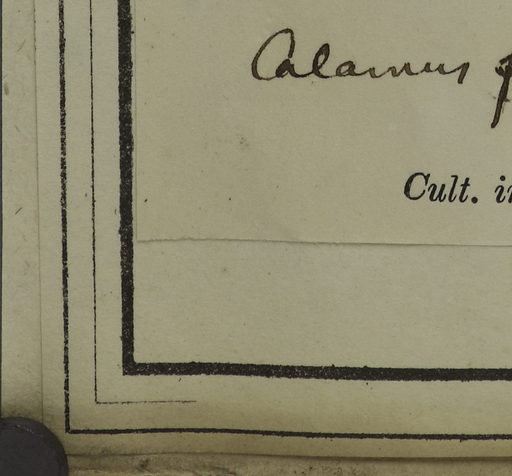 Calamus
Cult. in